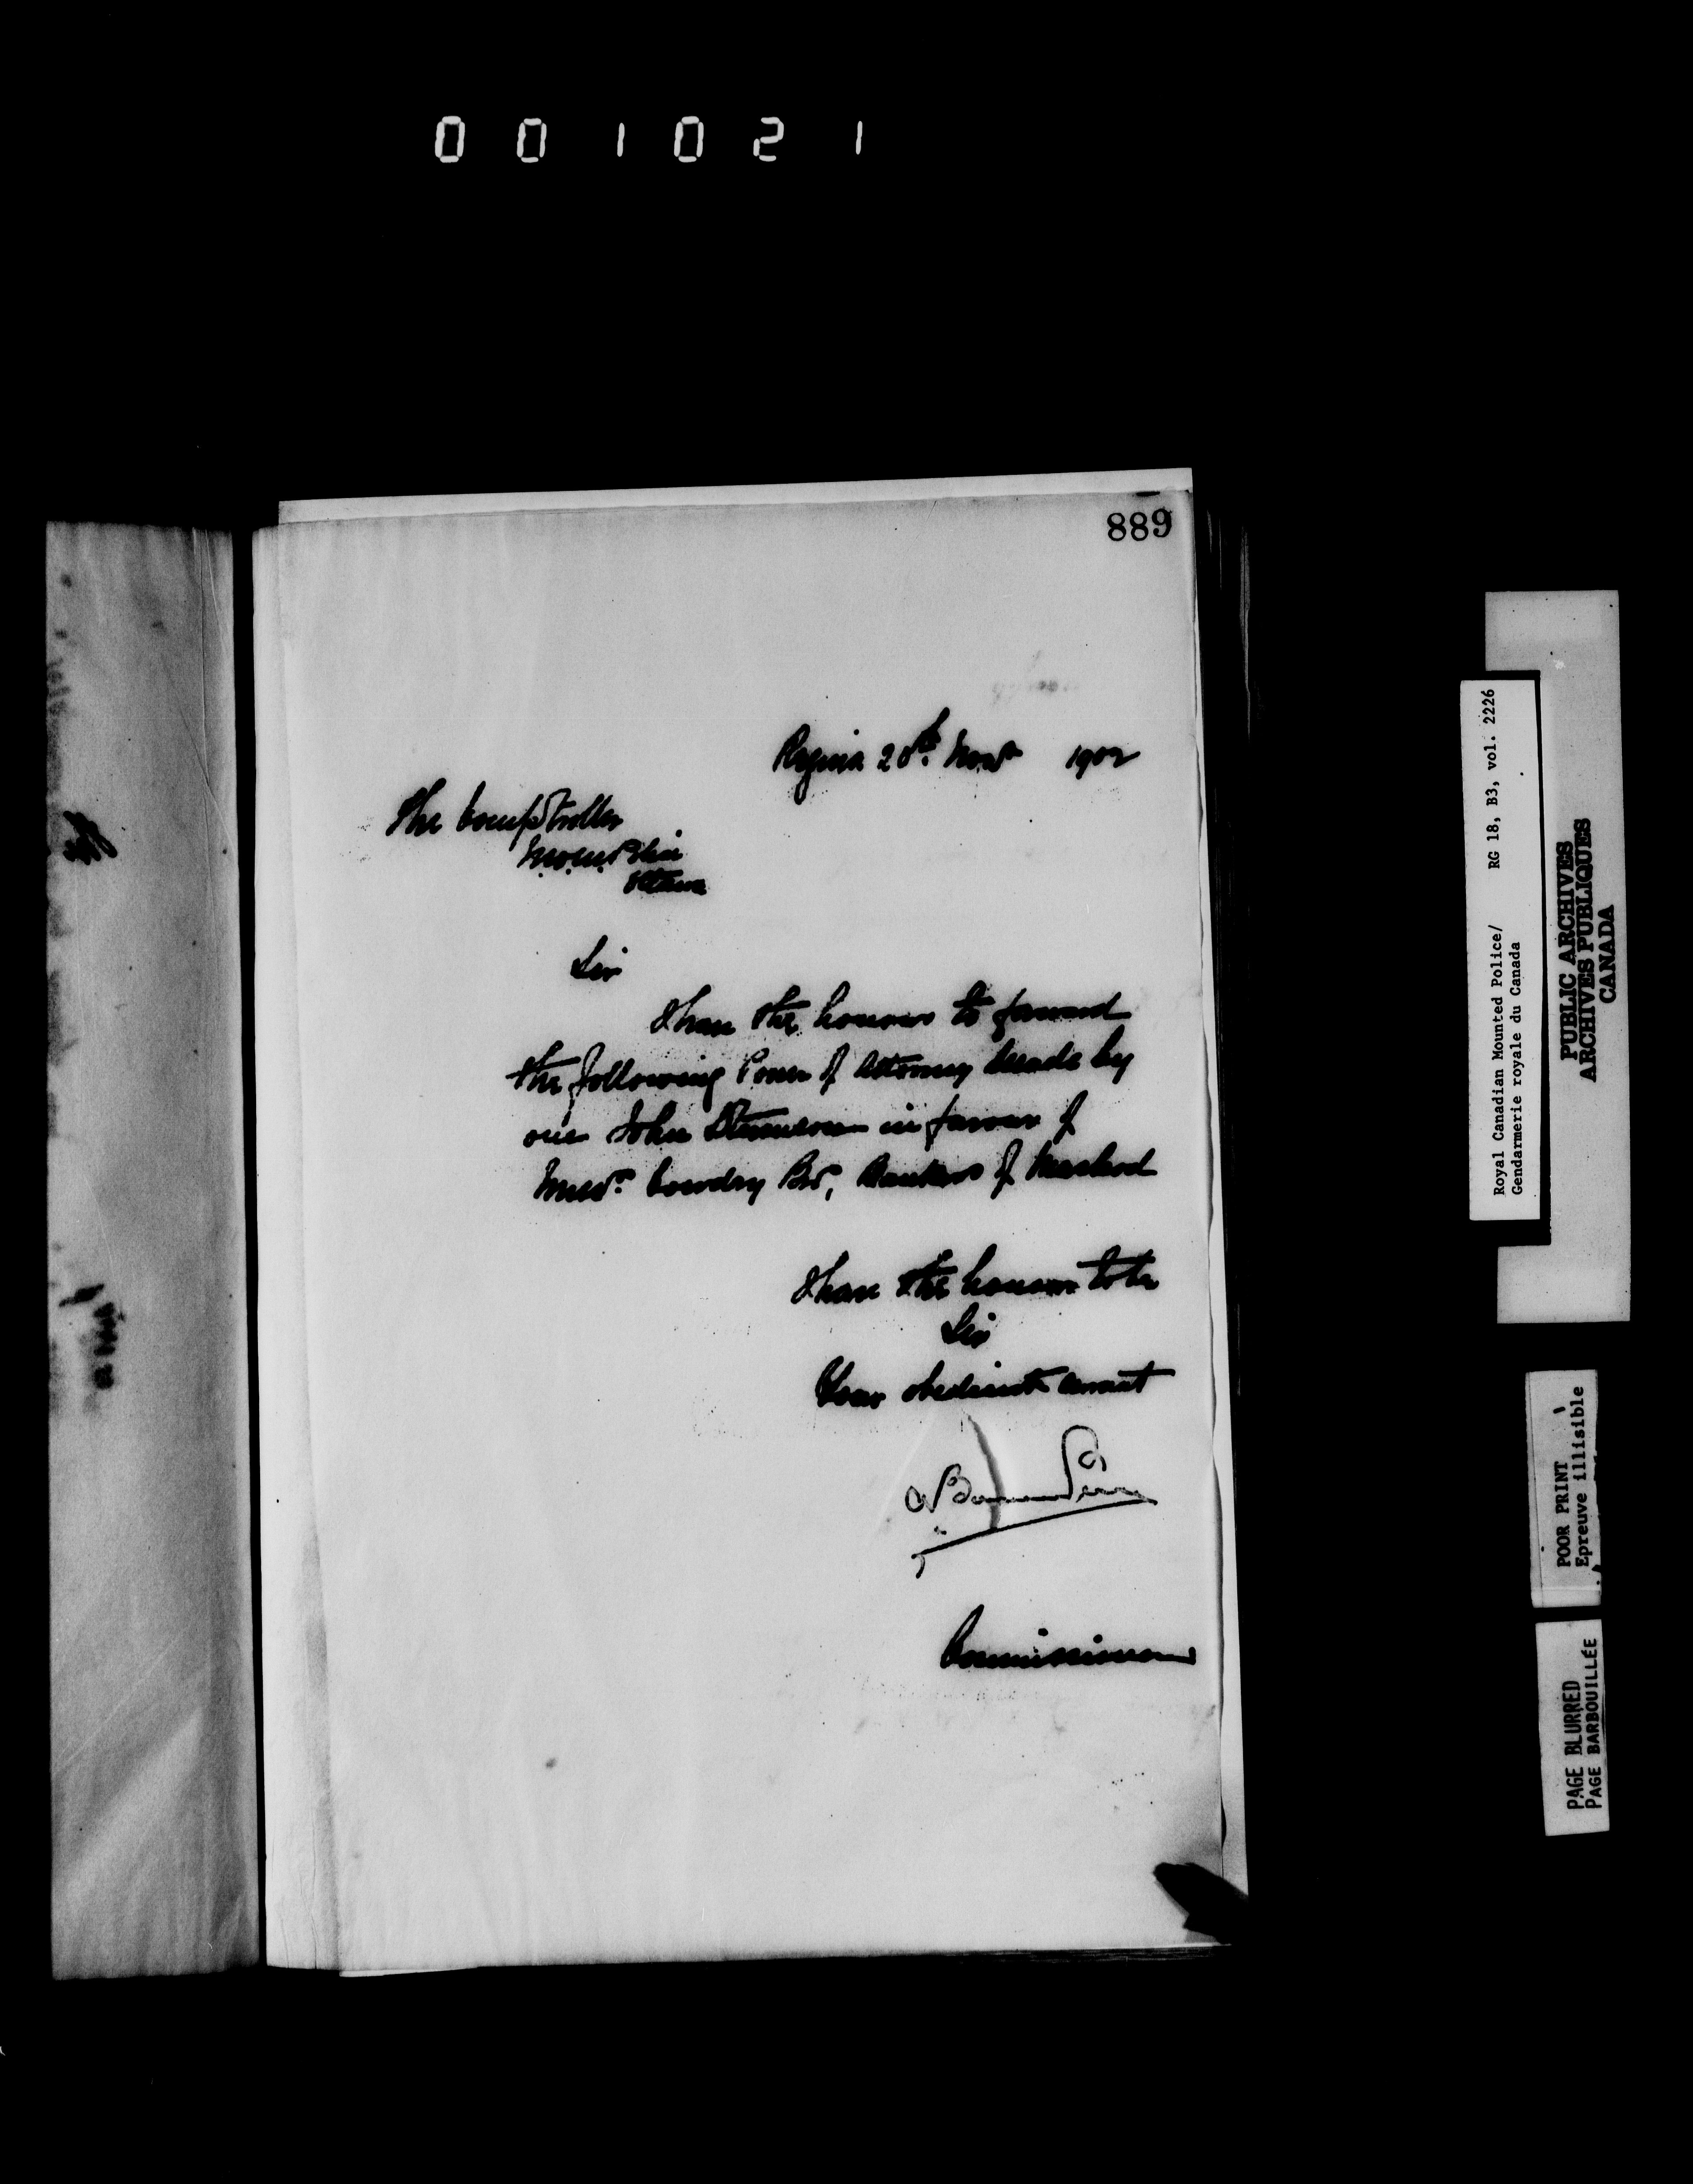 001021
889
Regina 20th Novr 1902
The Comptroller
N.W.M. Police
Ottawa
Sir
I have the honour to forward
the following Power of Attorney made by
one John Stevenson in favour of
Messrs. Cowdry Bros, Bankers of Macleod
I have the honour to be
Sir
Your obedient servant
A Bowen Perry
Commissioner
Royal Canadian Mounted Police/ RG 18, B3, vol. 2226
Gendarmerie royale du Canada
PUBLIC ARCHIVES
ARCHIVES PUBLIQUES
CANADA
POOR PRINT
Epreuve illisible
PAGE BLURRED
PAGE BARBOUILLÉE